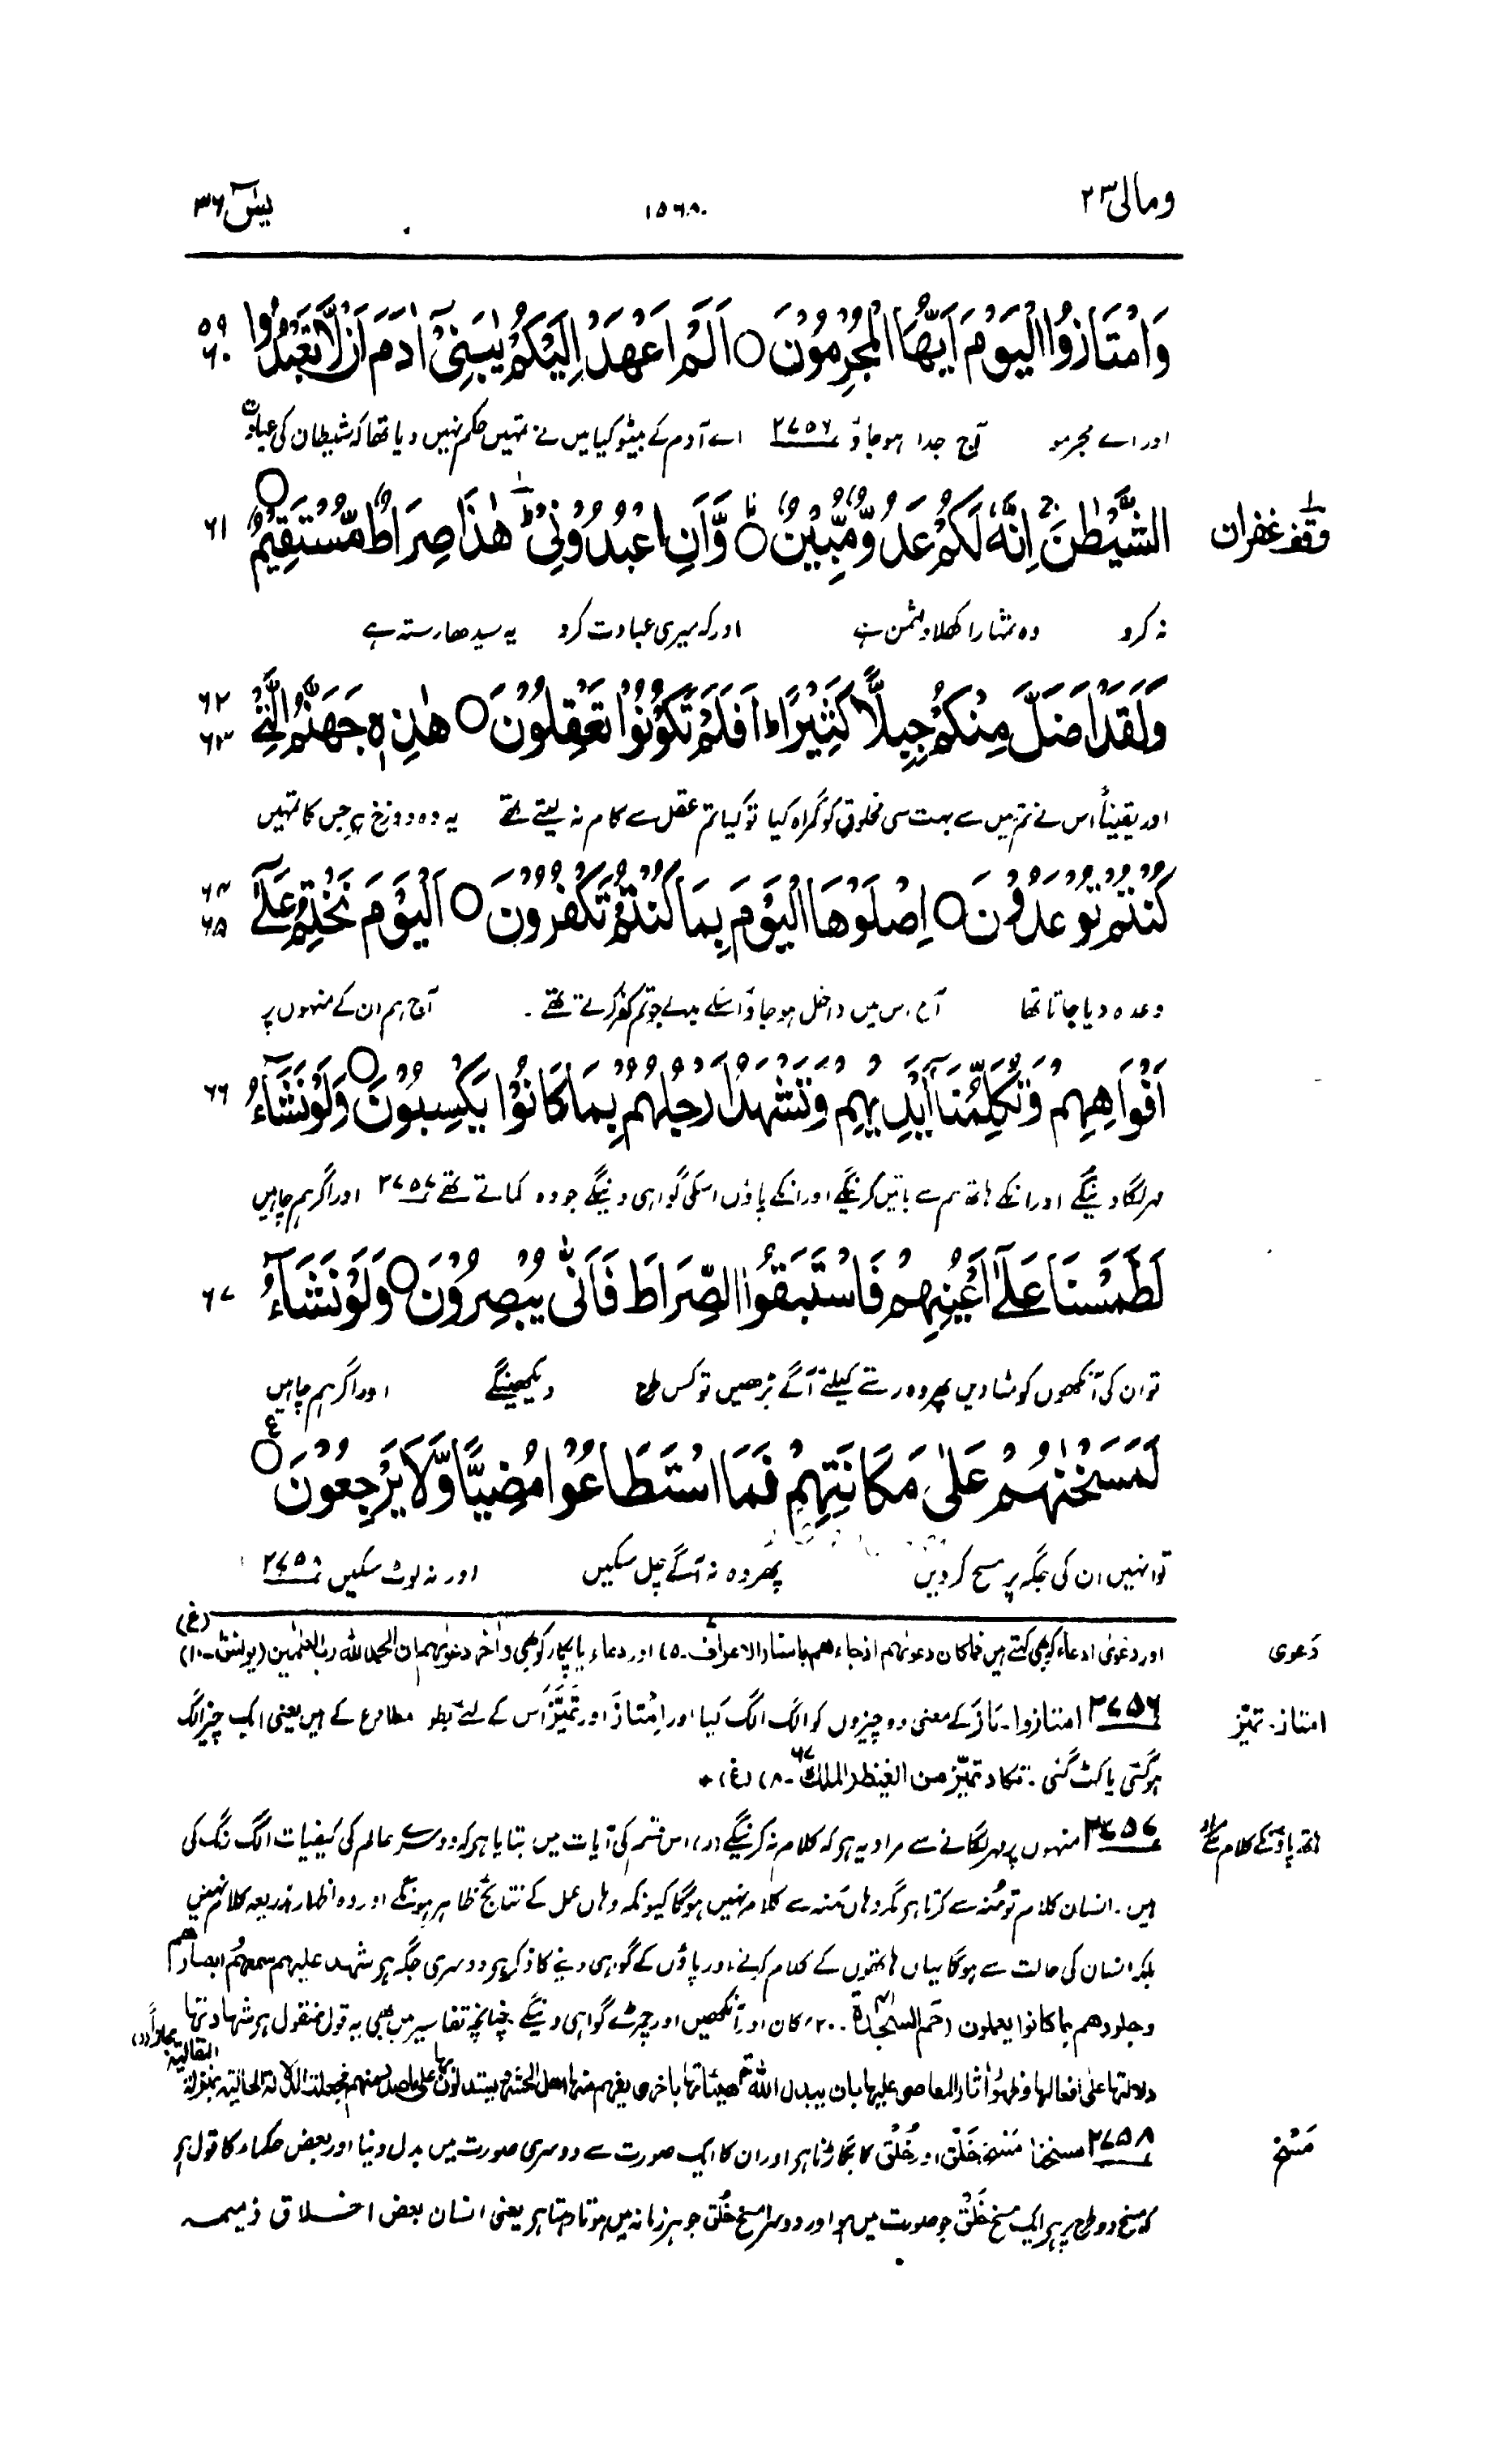 ومالی ۲۳
۱۵۶۸
یٰسٓ ۳۶
وَامْتَازُوا الْيَوْمَ اَيُّهَا الْمُجْرِمُوْنَ ○ اَلَمْ اَعْهَدْ اِلَيْكُمْ يٰبَنِيْٓ اٰدَمَ اَنْ لَّا تَعْبُدُوا ۵۹ ۶۰
اور اے مجرمو آج جدا ہو جاؤ ۲۷۵۶ اے آدم کے بیٹو کیا میں نے تمہیں حکم نہیں دیا تھا کہ شیطان کی عبادت
وقف غفران
الشَّيْطٰنَ ۚ اِنَّهٗ لَكُمْ عَدُوٌّ مُّبِيْنٌ ○ وَّاَنِ اعْبُدُوْنِيْ ؕ هٰذَا صِرَاطٌ مُّسْتَقِيْمٌ ○ ۶۱
نہ کرو وہ تمہارا کھلا دشمن ہے اور کہ میری عبادت کرو یہ سیدھا رستہ ہے
وَلَقَدْ اَضَلَّ مِنْكُمْ جِبِلًّا كَثِيْرًا ؕ اَفَلَمْ تَكُوْنُوْا تَعْقِلُوْنَ ○ هٰذِهٖ جَهَنَّمُ الَّتِيْ ۶۲ ۶۳
اور یقیناً اس نے تم میں سے بہت سی مخلوق کو گمراہ کیا تو کیا تم عقل سے کام نہ لیتے تھے یہ وہ دوزخ ہے جس کا تمہیں
كُنْتُمْ تُوْعَدُوْنَ ○ اِصْلَوْهَا الْيَوْمَ بِمَا كُنْتُمْ تَكْفُرُوْنَ ○ اَلْيَوْمَ نَخْتِمُ عَلٰٓى ۶۴ ۶۵
وعدہ دیا جاتا تھا آج اس میں داخل ہو جاؤ اسلئے جو تم کفر کرتے تھے ۔ آج ہم ان کے منہوں پر
اَفْوَاهِهِمْ وَتُكَلِّمُنَآ اَيْدِيْهِمْ وَتَشْهَدُ اَرْجُلُهُمْ بِمَا كَانُوْا يَكْسِبُوْنَ ○ وَلَوْ نَشَآءُ ۶۶
مہر لگا دینگے اور انکے ہاتھ ہم سے باتیں کرینگے اور انکے پاؤں اسکی گواہی دینگے جو وہ کماتے تھے ۲۷۵۷ اور اگر ہم چاہیں
لَطَمَسْنَا عَلٰٓى اَعْيُنِهِمْ فَاسْتَبَقُوا الصِّرَاطَ فَاَنّٰى يُبْصِرُوْنَ ○ وَلَوْ نَشَآءُ ۶۷
تو ان کی آنکھوں کو مٹا دیں پھر وہ رستے کیلئے آگے بڑھیں تو کس طرح دیکھینگے اور اگر ہم چاہیں
لَمَسَخْنٰهُمْ عَلٰى مَكَانَتِهِمْ فَمَا اسْتَطَاعُوْا مُضِيًّا وَّلَا يَرْجِعُوْنَ ○ ع
تو انہیں ان کی جگہ پر مسخ کر دیں پھر وہ نہ آگے چل سکیں اور نہ لوٹ سکیں ۲۷۵۸
دَعوی
اور دعویٰ ادعاء کو بھی کہتے ہیں فما کان دعوٰىهم اذ جاءهم باسنا (الاعراف ۷-۵) اور دعاء یا پکار کو بھی واٰخر دعوٰىهم ان الحمد لله رب العٰلمین (یونس ۱۰-۱۰) (غ)
امتاز۔ تمیّز
۲۷۵۶ امتازوا۔ مَازَ کے معنی دو چیزوں کو الگ الگ کیا اور اِمْتَازَ اور تَمَیَّزَ اُس کے لئے بطور مطاوع کے ہیں یعنی ایک چیز الگ
ہوگئی یا کٹ گئی۔ تکاد تمیّز من الغیظ (الملک ۶۷-۸) (غ) *
ہاتھ پاؤں کے کلام سے مراد
۲۷۵۷ منہوں پر مہر لگانے سے مراد یہ ہے کہ کلام نہ کرینگے (ر)، اس قسم کی آیات میں بتایا ہے کہ دوسرے عالم کی کیفیات الگ رنگ کی
ہیں۔ انسان کلام تو مُنہ سے کرتا ہے مگر وہاں مُنہ سے کلام نہیں ہوگا کیونکہ وہاں عمل کے نتائج ظاہر ہونگے اور وہ اظہار بذریعہ کلام نہیں
بلکہ انسان کی حالت سے ہوگا یہاں ہاتھوں کے کلام کرنے اور پاؤں کے گواہی دینے کا ذکر ہے دوسری جگہ ہے شهد علیهم سمعهم وابصارهم
وجلودهم بما کانوا یعملون (حم السجدة ۴۱-۲۰) کان اور آنکھیں اور چمڑے گواہی دینگے چنانچہ تفاسیر میں بھی یہ قول منقول ہے شهادتها
دلالتها علی افعالها وظهور اٰثار المعاصی علیها بان یبدل الله هیئاتها باخری یفهم منها اهل الحشر ویستدلون بها علی ما صدر منهم فجعلت الدلالة الحالیة بمنزلة المقالیة مجازاً (ر)
مَسْخ
۲۷۵۸ مسخنا مَسْخ خَلْق اور خُلْق کا بگاڑنا ہے اور ان کا ایک صورت سے دوسری صورت میں بدل دینا اور بعض حکماء کا قول ہے
کہ مسخ دو طرح پر ہے ایک مسخ خَلْق جو صورت میں ہو اور دوسرا مسخ خُلق جو ہر زمانہ میں ہوتا رہتا ہے یعنی انسان بعض اخلاق ذمیمہ